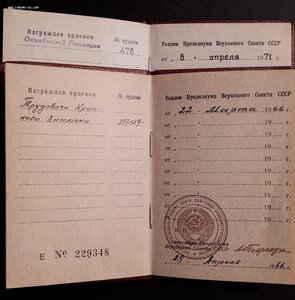 www.rumoni-ru.com
Награжден орденом
№ ордена
Октябрьской Революции
478
Указом Президиума Верховного Совета СССР
от 8 апреля 1971 г.
Награжден орденом
№ ордена
Трудового Крас-
ного Знамени
Указом Президиума Верховного Совета СССР
от 22 Марта 1966 г.
от 19 г.
от 19 г.
от 19 г.
от 19 г.
от 19 г.
от 19 г.
М. П.
Секретарь Президиума
Верховного Совета СССР
29 Апреля 1966 г.
Е № 229348